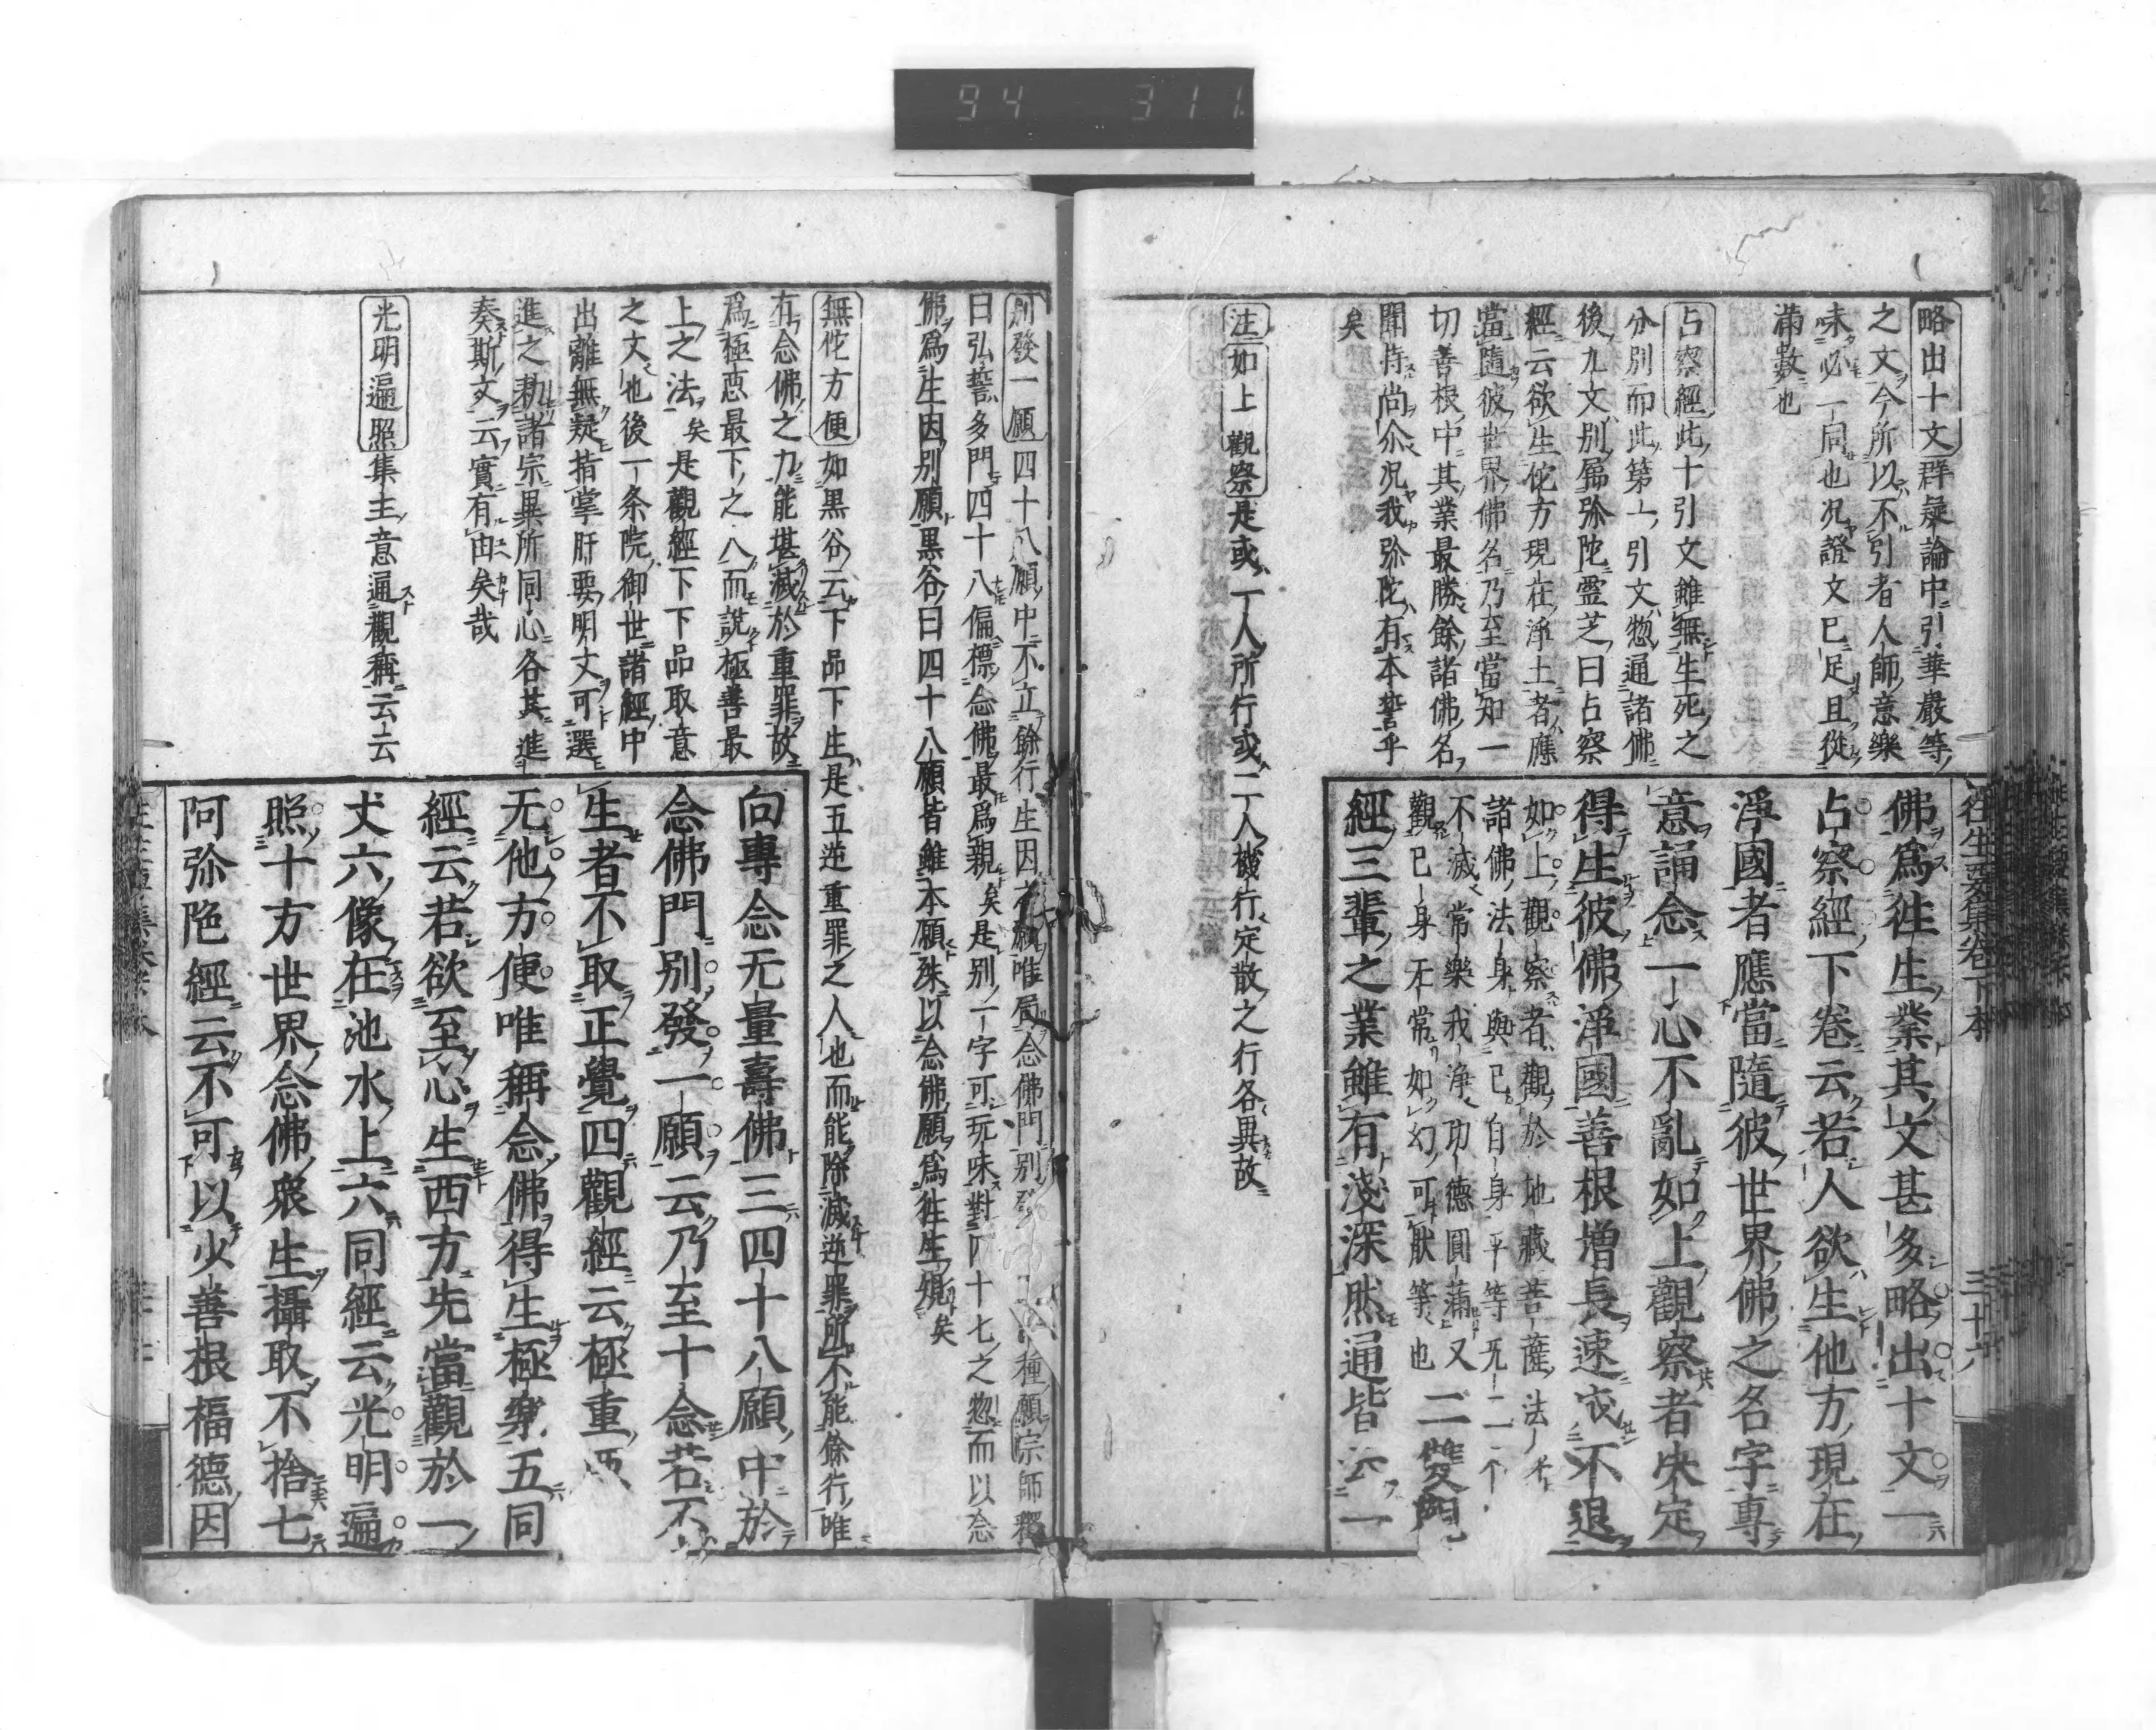 94 311
略出十文群疑論中引華嚴等
之文今所以不引者人師意樂
未必一同也況證文已足且從
滿數也
占察經此十引文雖無生死之
分別而此第一引文惣通諸佛
後九文別屬弥陀靈芝曰占察
經云欲生佗方現在淨土者應
當隨彼世界佛名乃至當知一
切善根中其業最勝餘諸佛名
聞持尚尒況我弥陀有本誓乎
矣
注如上觀察是或一人所行或二人機行定散之行各異故
往生要集卷下本
佛爲徃生業其文甚多略出十文一
占察經下卷云若人欲生他方現在
淨國者應當隨彼世界佛之名字專
意誦念一心不亂如上觀察者决定
得生彼佛淨國善根増長速成不退
如上觀察者觀於地藏菩薩法身
諸佛法身與己自身平等无二不
不滅常樂我淨功德圓滿又
觀己身无常如幻可猒等也
二雙觀
經三輩之業雖有淺深然通皆云一
別發一願四十八願中不立餘行生因之願唯局念佛門別發
種願宗師釋
曰弘誓多門四十八偏標念佛最爲親矣是別一字可玩味對四十七之惣而以念
佛爲生因別願黒谷曰四十八願皆雖本願殊以念佛願爲徃生規矣
無佗方便如黒谷云下品下生是五逆重罪之人也而能除滅逆罪所不能餘行唯
有念佛之力能堪滅於重罪故
爲極惡最下之人而說極善最
上之法矣是觀經下下品取意
之文也後一条院御世諸經中
出離無疑指掌肝要明文可選
進之勅諸宗畢所同心各其進
奏斯文云實有由矣哉
光明遍照集主意通觀稱云云
向專念无量壽佛三四十八願中於
念佛門別發一願云乃至十念若不
生者不取正覺四觀經云極重惡
无他方便唯稱念佛得生極樂五同
經云若欲至心生西方先當觀於一
丈六像在池水上六同經云光明遍
照十方世界念佛衆生攝取不捨七
阿弥陁經云不可以少善根福德因